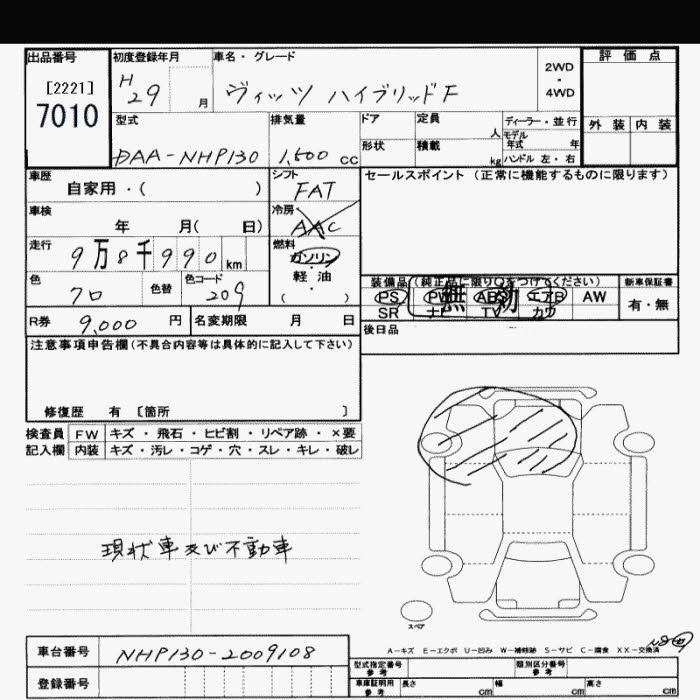 出品番号 初度登録年月 車名・グレード 2WD ・ 4WD 評価点
[2221]
7010
H29 月 ヴィッツ ハイブリッドF
型式 排気量 ドア 定員 人 ディーラー・並行 外装 内装
モデル年式 年
DAA-NHP130 1,500 cc 形状 積載 kg ハンドル 左・右
車歴 自家用・( ) シフト FAT セールスポイント (正常に機能するものに限ります)
車検 年 月( 日) 冷房 AAC
走行 9万8千990km 燃料 ガソリン・軽油 ( )
色 クロ 色替 色コード 209 装備品 (純正品に限り○をつけてください) 新車保証書
PS PW ABS エアB AW 有・無
無効
SR ナビ TV カワ
R券 9,000 円 名変期限 月 日 後日品
注意事項申告欄(不具合内容等は具体的に記入して下さい)
修復歴 有 〔箇所 〕
検査員 FW キズ・飛石・ヒビ割・リペア跡・×要
記入欄 内装 キズ・汚レ・コゲ・穴・スレ・キレ・破レ
現状車及び不動車
スペア
A-キズ E-エクボ U-凹み W-補修跡 S-サビ C-腐食 XX-交換済
車台番号 NHP130-2009108 型式指定番号 参考 類別区分番号 参考
登録番号 車庫証明用 参考 長さ cm 幅 cm 高さ cm